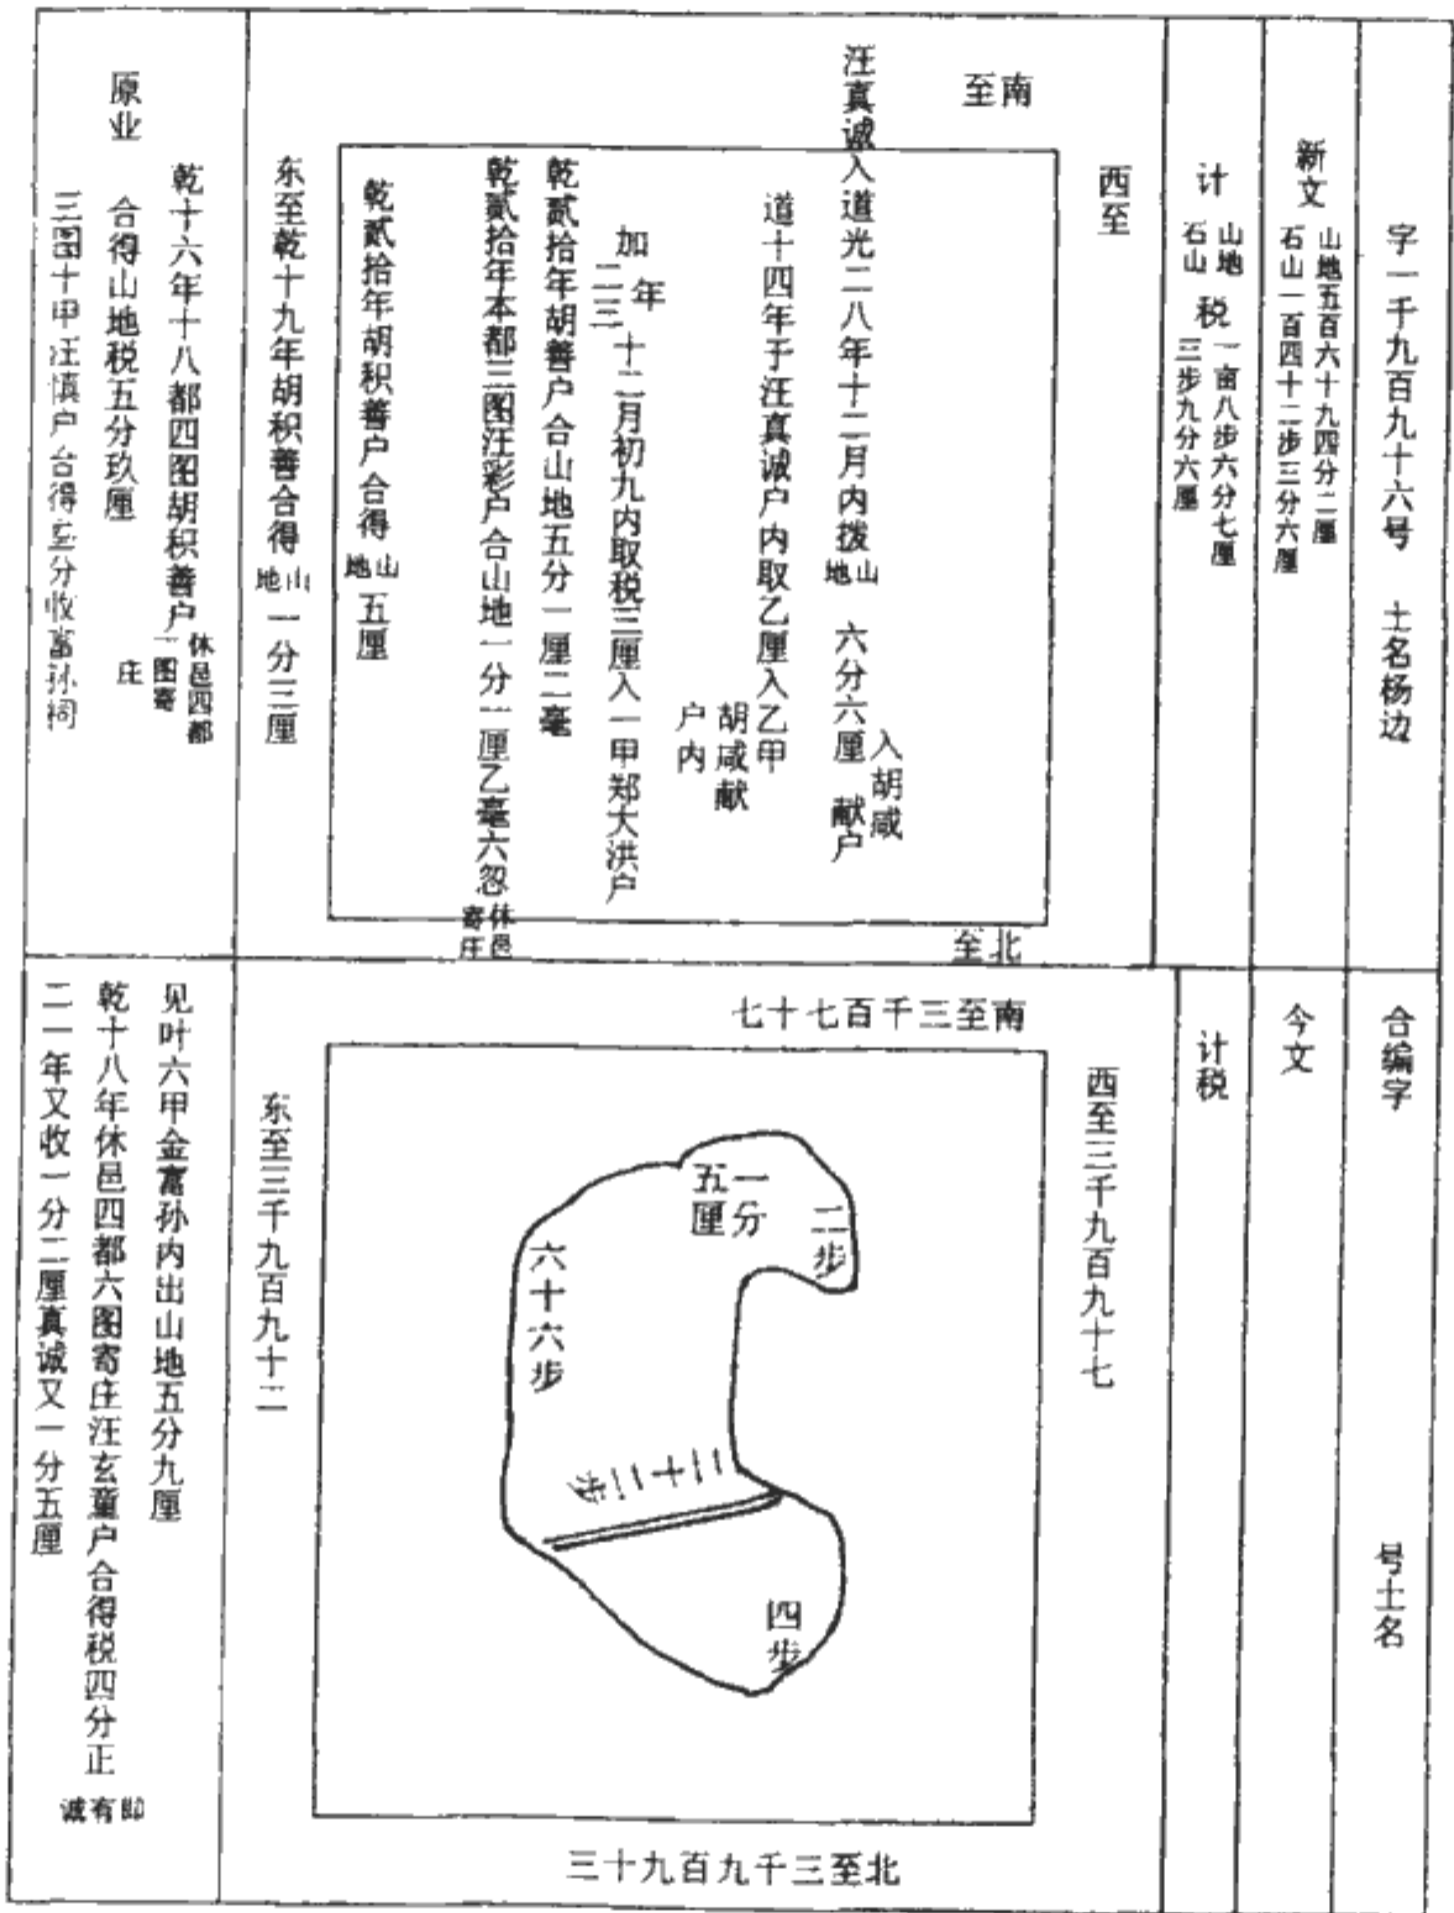 字一千九百九十六号 土名杨边
新文
山地五百六十九四分二厘
石山一百四十二步三分六厘
计
山地
石山
税
一亩八步六分七厘
三步九分六厘
西至
至南
汪真诚入道光二八年十二月内拨
山地
六分六厘
入胡咸
献户
道十四年于汪真诚户内取乙厘入乙甲
胡咸献
户内
加
年
二三
十二月初九内取税三厘入一甲郑大洪户
乾贰拾年胡善户合山地五分一厘二毫
乾贰拾年本都三图汪彩户合山地一分一厘乙毫六忽
休邑
寄庄
乾贰拾年胡积善户合得
山地
五厘
至北
东至乾十九年胡积善合得
山地
一分三厘
原业
乾十六年十八都四图胡积善户
休邑四都
一图寄
庄
合得山地税五分玖厘
三图十甲汪慎户合得 分收富孙祠
合编字
号土名
今文
计税
西至三千九百九十七
七十七百千三至南
一分
五厘
二步
六十六步
二十二步
四步
三十九百九千三至北
东至三千九百九十二
见叶六甲金富孙内出山地五分九厘
乾十八年休邑四都六图寄庄汪玄童户合得税四分正
二一年又收一分二厘真诚又一分五厘
诚有